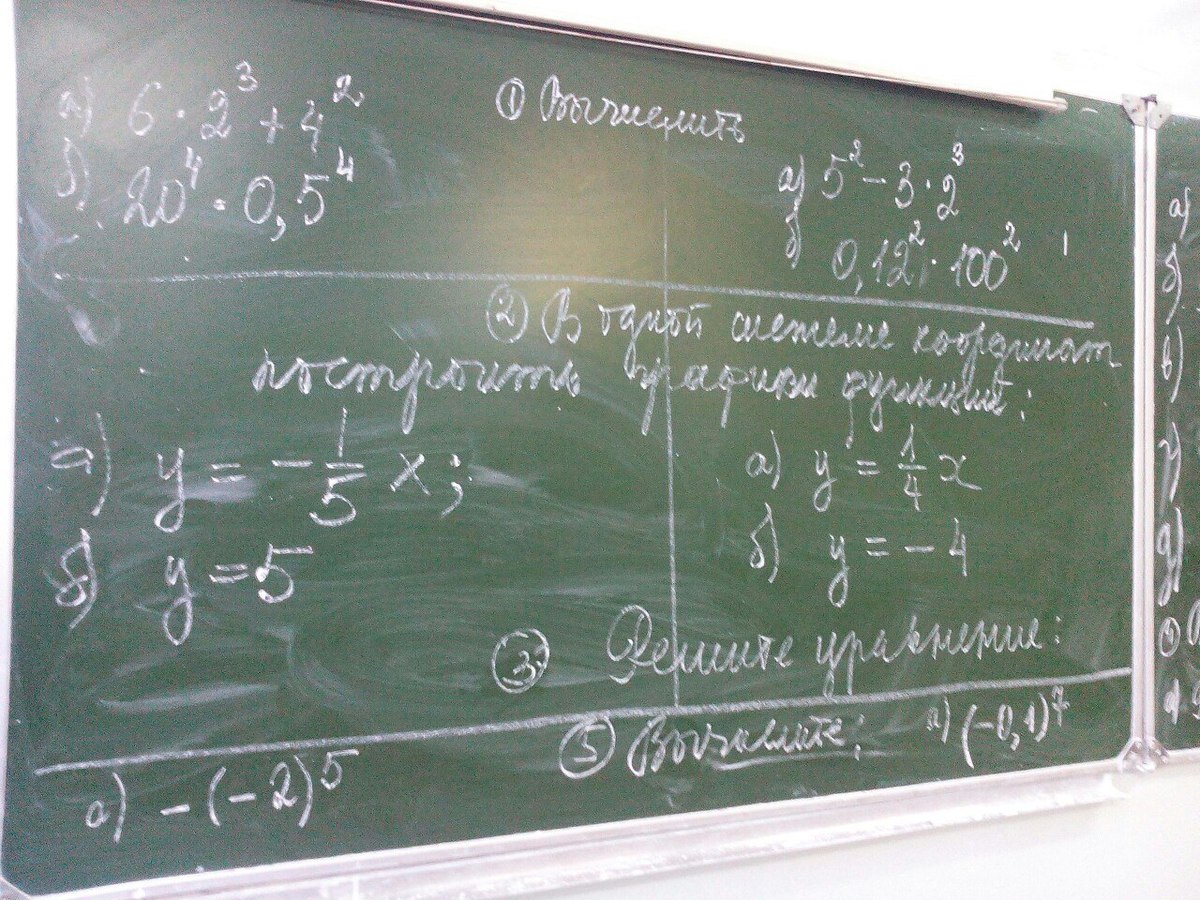 ① Вычислить
а) 6 · 2³ + 4²
б) 20⁴ · 0,5⁴
а) 5² - 3 · 2³
б) 0,12² · 100²
② В одной системе координат
построить графики функций:
а) y = -1/5 x;
б) y = 5
а) y = 1/4 x
б) y = -4
③ Решите уравнение:
⑤ Вычислите:
а) -(-2)⁵
а) (-0,1)⁷
а)
б)
в)
г)
д)